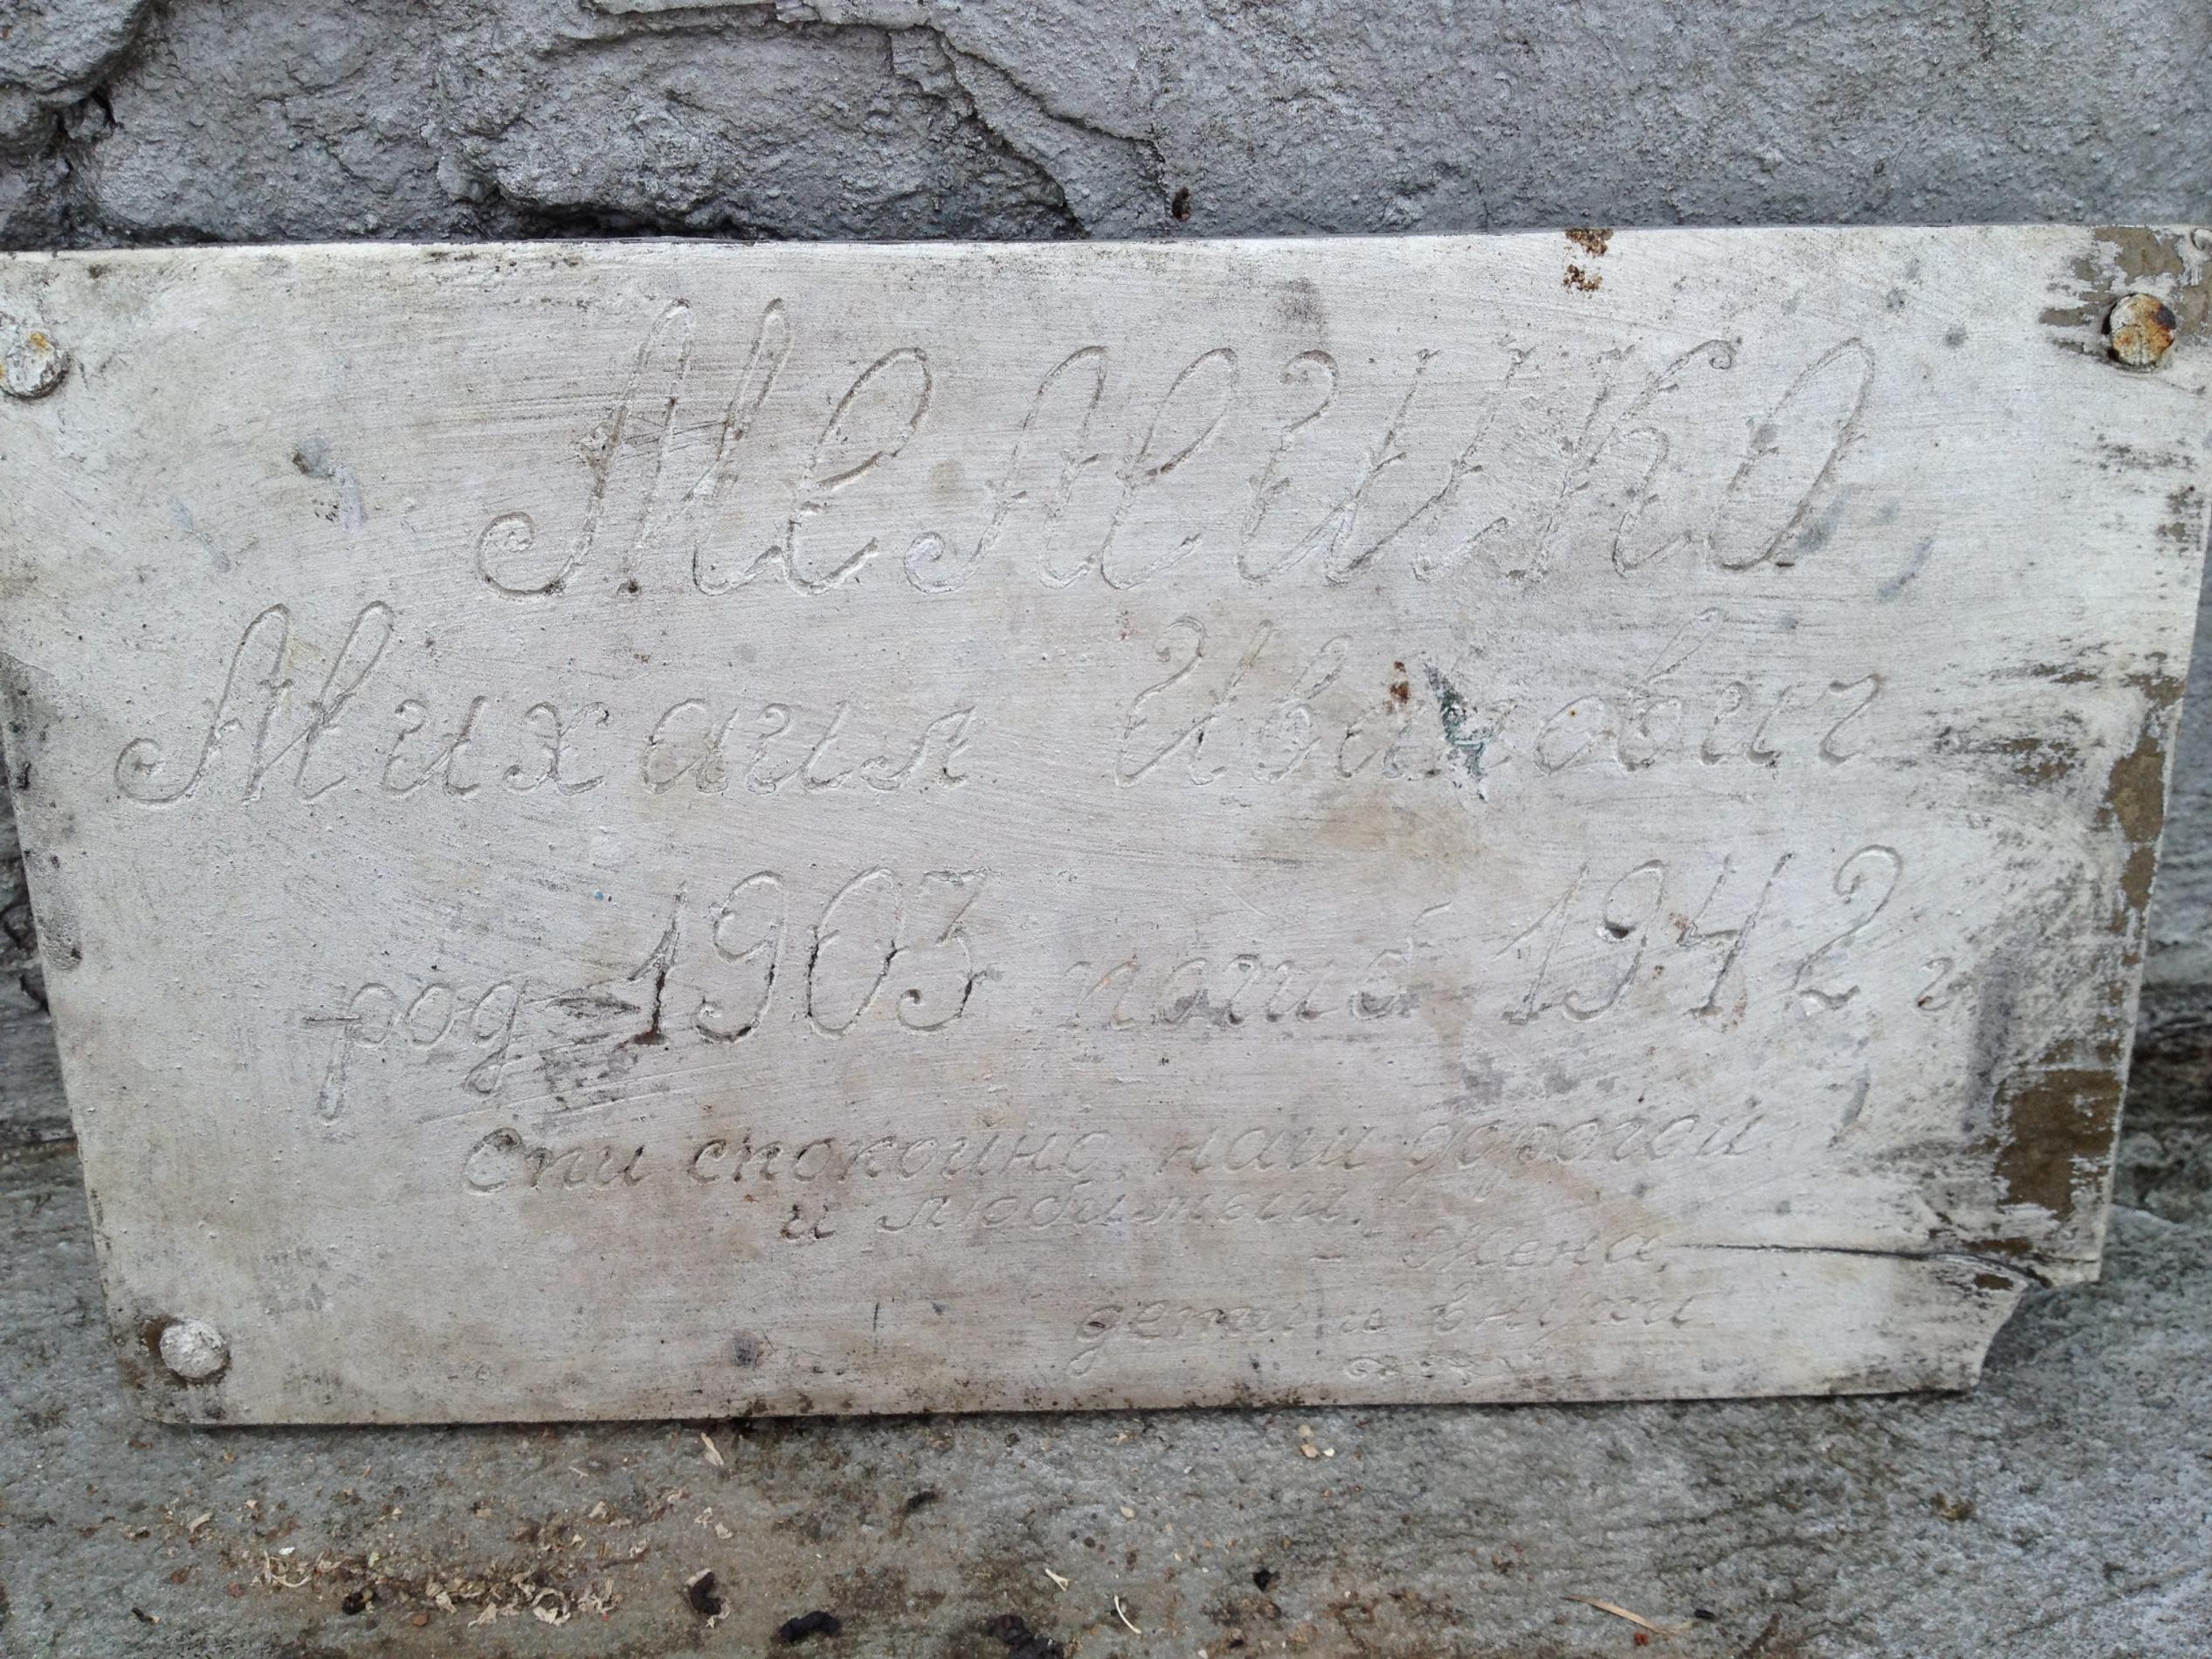 Мелешко,
Михаил Иванович
род 1903 погиб 1942 г
Спи спокойно, наш дорогой
и любимый.
- Жена,
дети и внуки